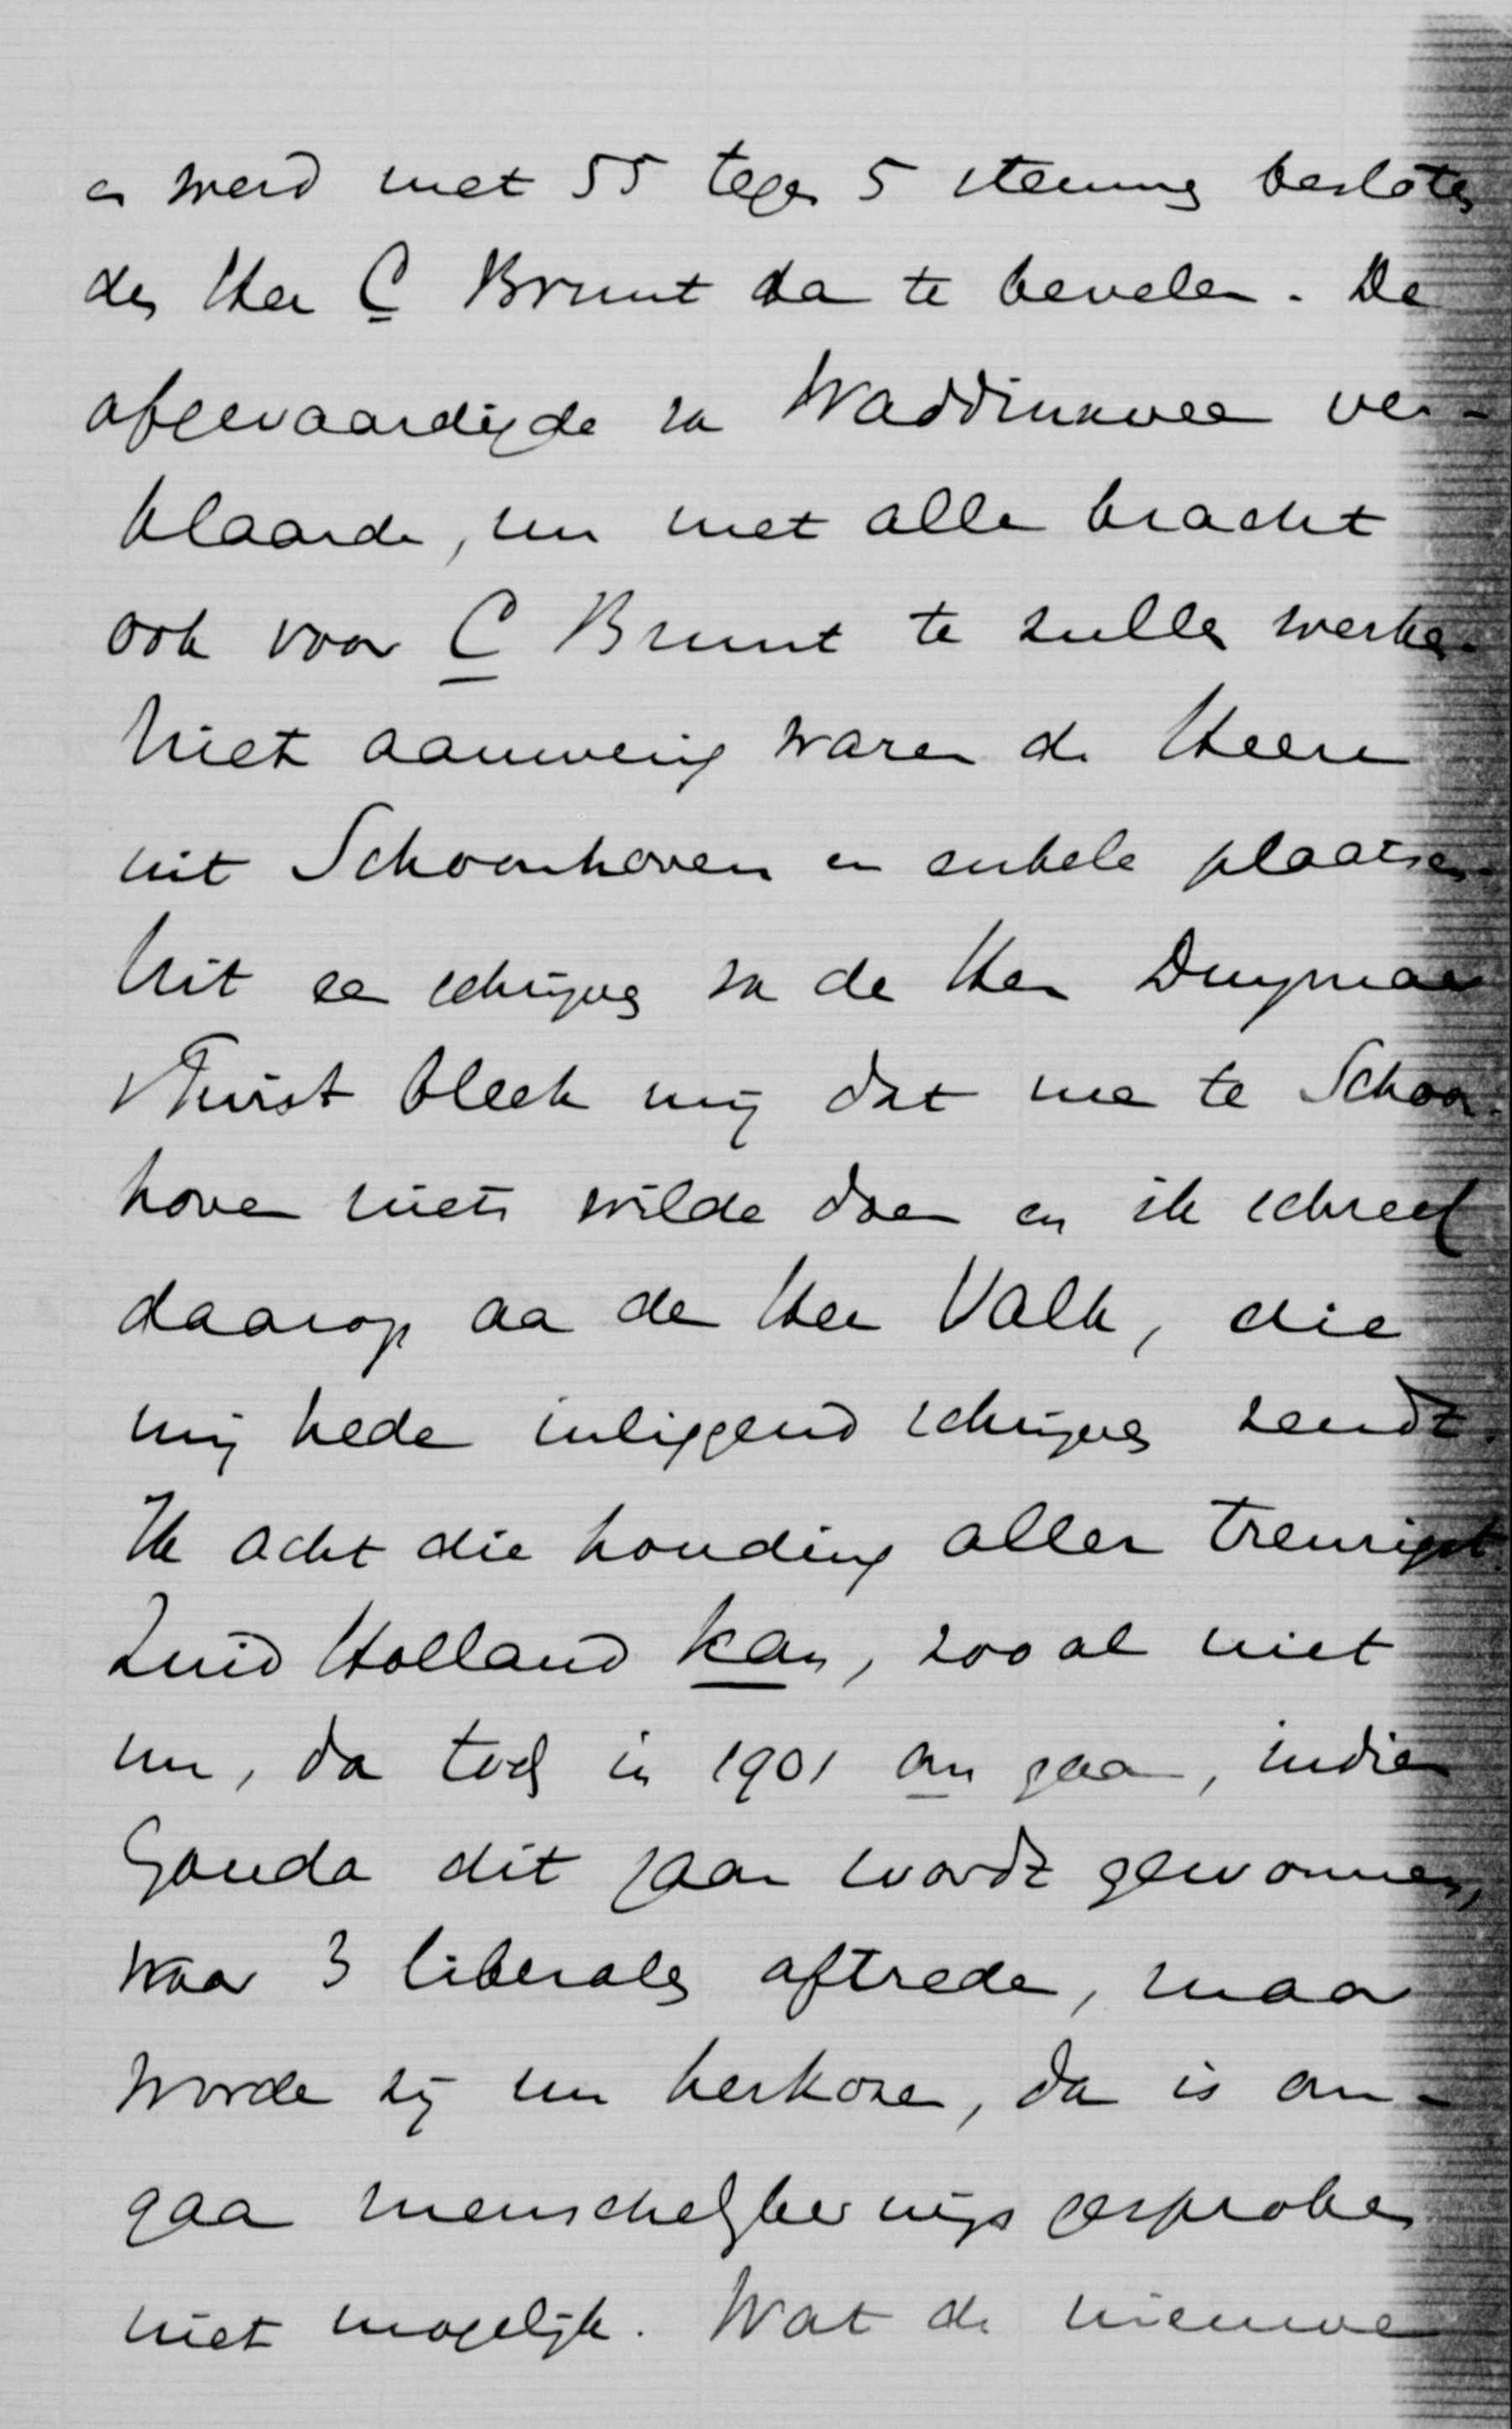 en werd met 55 tegen 5 stemmen besloten
den Heer C Brunt aan te bevelen. De
afgevaardigde van Waddinxveen ver-
klaarde, nu met alle kracht
ook voor C Brunt te zullen werken.
Niet aanwezig waren de Heeren
uit Schoonhoven en enkele plaatsen.
Uit een schrijven van den Heer Duymaer
v Twist bleek mij dat men te Schoon-
hoven niets wilde doen en ik schreef
daarop aan den Heer Valk, die
mij heden inliggend schrijven zendt.
Ik acht die houding aller treurigst.
Zuid Holland kan, zoo al niet
nu, dan toch in 1901 om gaan, indien
Gouda dit jaar wordt gewonnen,
waar 3 liberalen aftreden, maar
worden zij nu herkozen, dan is om-
gaan menschelijker wijs gesproken
niet mogelijk. Wat de nieuwe